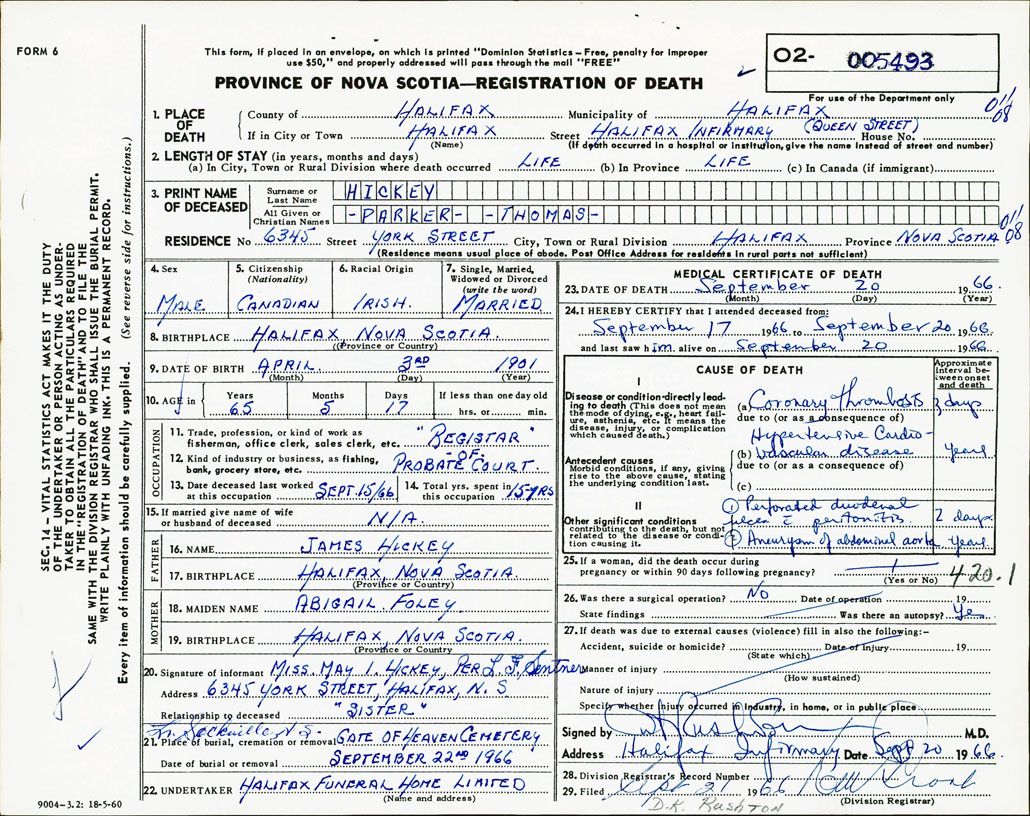 FORM 6
This form, if placed in an envelope, on which is printed "Dominion Statistics – Free, penalty for improper
use $50," and properly addressed will pass through the mail "FREE"
O2- 005493
PROVINCE OF NOVA SCOTIA—REGISTRATION OF DEATH
For use of the Department only
011/08
1. PLACE OF DEATH
County of HALIFAX Municipality of HALIFAX
If in City or Town HALIFAX Street HALIFAX INFIRMARY (QUEEN STREET) House No.
(Name) (If death occurred in a hospital or institution, give the name instead of street and number)
2. LENGTH OF STAY (in years, months and days)
(a) In City, Town or Rural Division where death occurred LIFE (b) In Province LIFE (c) In Canada (if immigrant)
3. PRINT NAME OF DECEASED
Surname or Last Name HICKEY
All Given or Christian Names -PARKER- -THOMAS-
011/08
RESIDENCE No 6345 Street YORK STREET City, Town or Rural Division HALIFAX Province NOVA SCOTIA
(Residence means usual place of abode. Post Office Address for residents in rural parts not sufficient)
4. Sex MALE
5. Citizenship (Nationality) CANADIAN
6. Racial Origin IRISH.
7. Single, Married, Widowed or Divorced (write the word) MARRIED
8. BIRTHPLACE HALIFAX, NOVA SCOTIA.
(Province or Country)
9. DATE OF BIRTH APRIL. 3RD 1901
(Month) (Day) (Year)
10. AGE in Years 65 Months 5 Days 17 If less than one day old
hrs. or min.
OCCUPATION
11. Trade, profession, or kind of work as
fisherman, office clerk, sales clerk, etc. "REGISTAR"
-OF-
12. Kind of industry or business, as fishing,
bank, grocery store, etc. PROBATE COURT.
13. Date deceased last worked
at this occupation SEPT. 15/66
14. Total yrs. spent in
this occupation 15 YRS
15. If married give name of wife
or husband of deceased N/A.
FATHER
16. NAME JAMES HICKEY
17. BIRTHPLACE HALIFAX, NOVA SCOTIA.
(Province or Country)
MOTHER
18. MAIDEN NAME ABIGAIL FOLEY
19. BIRTHPLACE HALIFAX, NOVA SCOTIA.
(Province or Country)
20. Signature of informant MISS. MAY I. HICKEY, PER L. F. Sentner
Address 6345 YORK STREET, HALIFAX, N. S
Relationship to deceased "SISTER"
Sackville N.S.
21. Place of burial, cremation or removal GATE OF HEAVEN CEMETERY
Date of burial or removal SEPTEMBER 22ND 1966
22. UNDERTAKER HALIFAX FUNERAL HOME LIMITED
(Name and address)
MEDICAL CERTIFICATE OF DEATH
23. DATE OF DEATH September 20 1966
(Month) (Day) (Year)
24. I HEREBY CERTIFY that I attended deceased from:
September 17 1966 to September 20 1966
and last saw him alive on September 20 1966
CAUSE OF DEATH
Approximate interval between onset and death
I
Disease or condition directly leading to death (This does not mean the mode of dying, e.g., heart failure, asthenia, etc. It means the disease, injury, or complication which caused death.)
(a) Coronary thrombosis 3 days
due to (or as a consequence of)
Hypertensive Cardio-
(b) vascular disease years
due to (or as a consequence of)
(c)
Antecedent causes
Morbid conditions, if any, giving rise to the above cause, stating the underlying condition last.
II
Other significant conditions
contributing to the death, but not related to the disease or condition causing it.
① Perforated duodenal
ulcer c̄ peritonitis. 2 days
② Aneurysm of abdominal aorta years.
25. If a woman, did the death occur during
pregnancy or within 90 days following pregnancy?
(Yes or No)
420.1
26. Was there a surgical operation? NO Date of operation 19
State findings Was there an autopsy? Yes
27. If death was due to external causes (violence) fill in also the following:–
Accident, suicide or homicide? Date of injury 19
(State which)
Manner of injury
(How sustained)
Nature of injury
Specify whether injury occurred in industry, in home, or in public place
Signed by M.D.
Address Halifax Infirmary Date Sept 20 1966
28. Division Registrar's Record Number
29. Filed Sept 21 1966
(Division Registrar)
D.K. RUSHTON
SEC. 14 – VITAL STATISTICS ACT MAKES IT THE DUTY
OF THE UNDERTAKER OR PERSON ACTING AS UNDER-
TAKER TO OBTAIN ALL THE PARTICULARS REQUIRED
IN THE "REGISTRATION OF DEATH" AND TO FILE THE
SAME WITH THE DIVISION REGISTRAR WHO SHALL ISSUE THE BURIAL PERMIT.
WRITE PLAINLY WITH UNFADING INK. THIS IS A PERMANENT RECORD.
Every item of information should be carefully supplied. (See reverse side for instructions.)
9004-3.2: 18-5-60